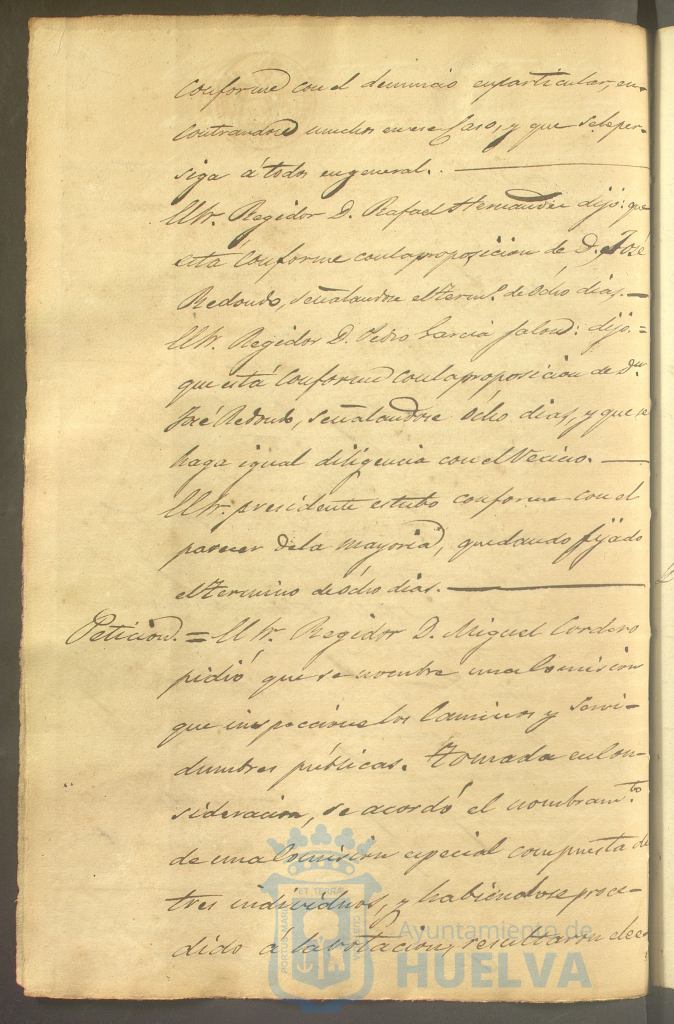 conforme con el denuncio en particular, en-
contrandose muchos en ese Caso, y que se le per-
siga á todos en general.
El Sr. Regidor D. Rafael Hernandez dijo: que
está Conforme con la proposicion de D. José
Redondo, señalandose el term.º de ócho dias.
El Sr. Regidor D. Pedro Garcia Jalon: dijo =
que está Conforme con la proposicion de Dn.
José Redondo, señalandose ócho dias, y que se
haga igual diligencia con el Vecino.
El Sr. presidente estubo conforme con el
parecer de la mayoria, quedando fijado
el termino de ócho dias.
Peticion. = El Sr. Regidor D. Miguel Cordero
pidió que se nombre una Comision
que inspeccione los Caminos y Servi-
dumbres públicas. Tomada en Con-
sideracion, se acordó el nombramto.
de una Comision especial compuesta de
tres individuos, y habiendose proce-
dido á la votacion, resultaron elec-
PORTUS MARIS ET TERRAE CUSTODIA
Ayuntamiento de
HUELVA